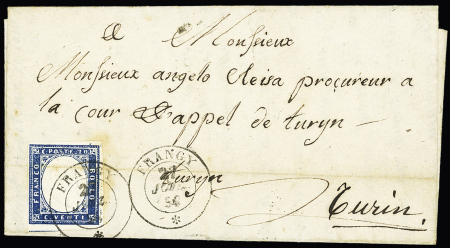 A Monsieur
Monsieur angelo procureur a
la cour D'appel de turyn
turyn
Turin.
FRANCO C. POSTE 20 BOLLO C. VENTI
FRANGY
FRANGY